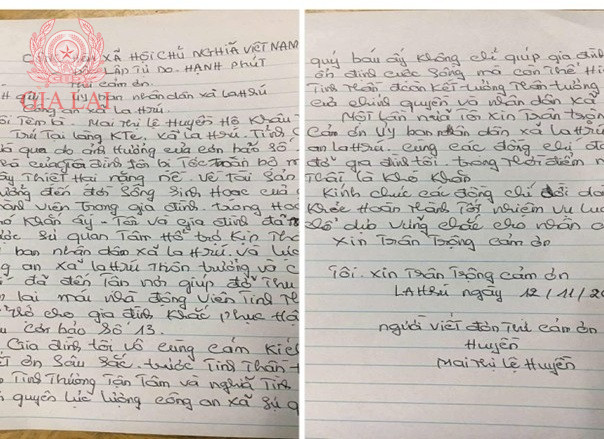 XÃ HỘI CHỦ NGHĨA VIỆT NAM
LẬP TỰ DO. HẠNH PHÚT
Thư cảm ơn.
GIA LAI
ủy ban nhân dân xã Ia Hrú
công an xã Ia Hrú.
Tôi Tên là. Mai Thị Lệ Huyền Hộ Khẩu
Trú Tại làng KTe. xã Ia Hrú. Tỉnh
qua do ảnh hưởng của cơn bão số
của gia đình tôi bị Tốc Toàn bộ m
ây Thiệt Hại nặng nề. Về Tài Sản
đến đời Sống Sinh Hoạt của
Viên Trong gia đình. trong Hoà
Khó Khăn ấy. Tôi và gia đình đã
Sự quan Tâm Hỗ trợ Kịp Th
ban nhân dân xã Ia Hrú. và Lực
an xã Ia Hrú Thôn trưởng và
đã đến Tận nơi giúp đỡ Thu
lại mái nhà động Viên Tinh Th
cho gia đình Khắc Phục Hậ
Cơn bảo Số 13.
Gia đình tôi vô cùng cảm Kíc
ơn Sâu Sắc. trước Tinh Thần
Tình Thương Tận Tâm và nghĩa Tình
quyền Lực Lượng công an xã Sự q
quý báu ấy Không chỉ giúp gia đình
ổn định cuộc Sống mà còn Thể Hi
Tinh Thần đoàn Kết Tương Thân Tương
của chính quyền và nhân dân xã
Một Lần nữa Tôi Xin Trân Trọng
Cảm ơn Uỷ ban nhân dân xã Ia Hrú
an Ia Hrú. cùng các đồng chí đã
đỡ gia đình tôi. trong Thời điểm
Thật là Khó Khăn
Kính chúc các đồng chí dồi dà
Khỏe Hoàn Thành Tốt nhiệm vụ Luô
chỗ dựa Vững chắc cho nhân
Xin Trân Trọng cảm ơn
Tôi. Xin Trân Trọng cảm ơn
Ia Hrú ngày 12/11/20
người Viết đơn Thư cảm ơn
Huyền
Mai Thị Lệ Huyền